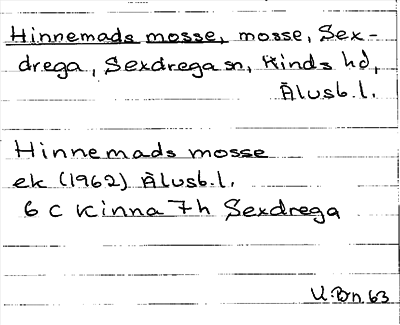 Hinnemads mosse, mosse, Sex-
drega, Sexdrega sn, Kinds hd,
Älvsb. l.
Hinnemads mosse
ek (1962) Älvsb. l.
6 C Kinna 7 h Sexdrega
U. Bn. 63